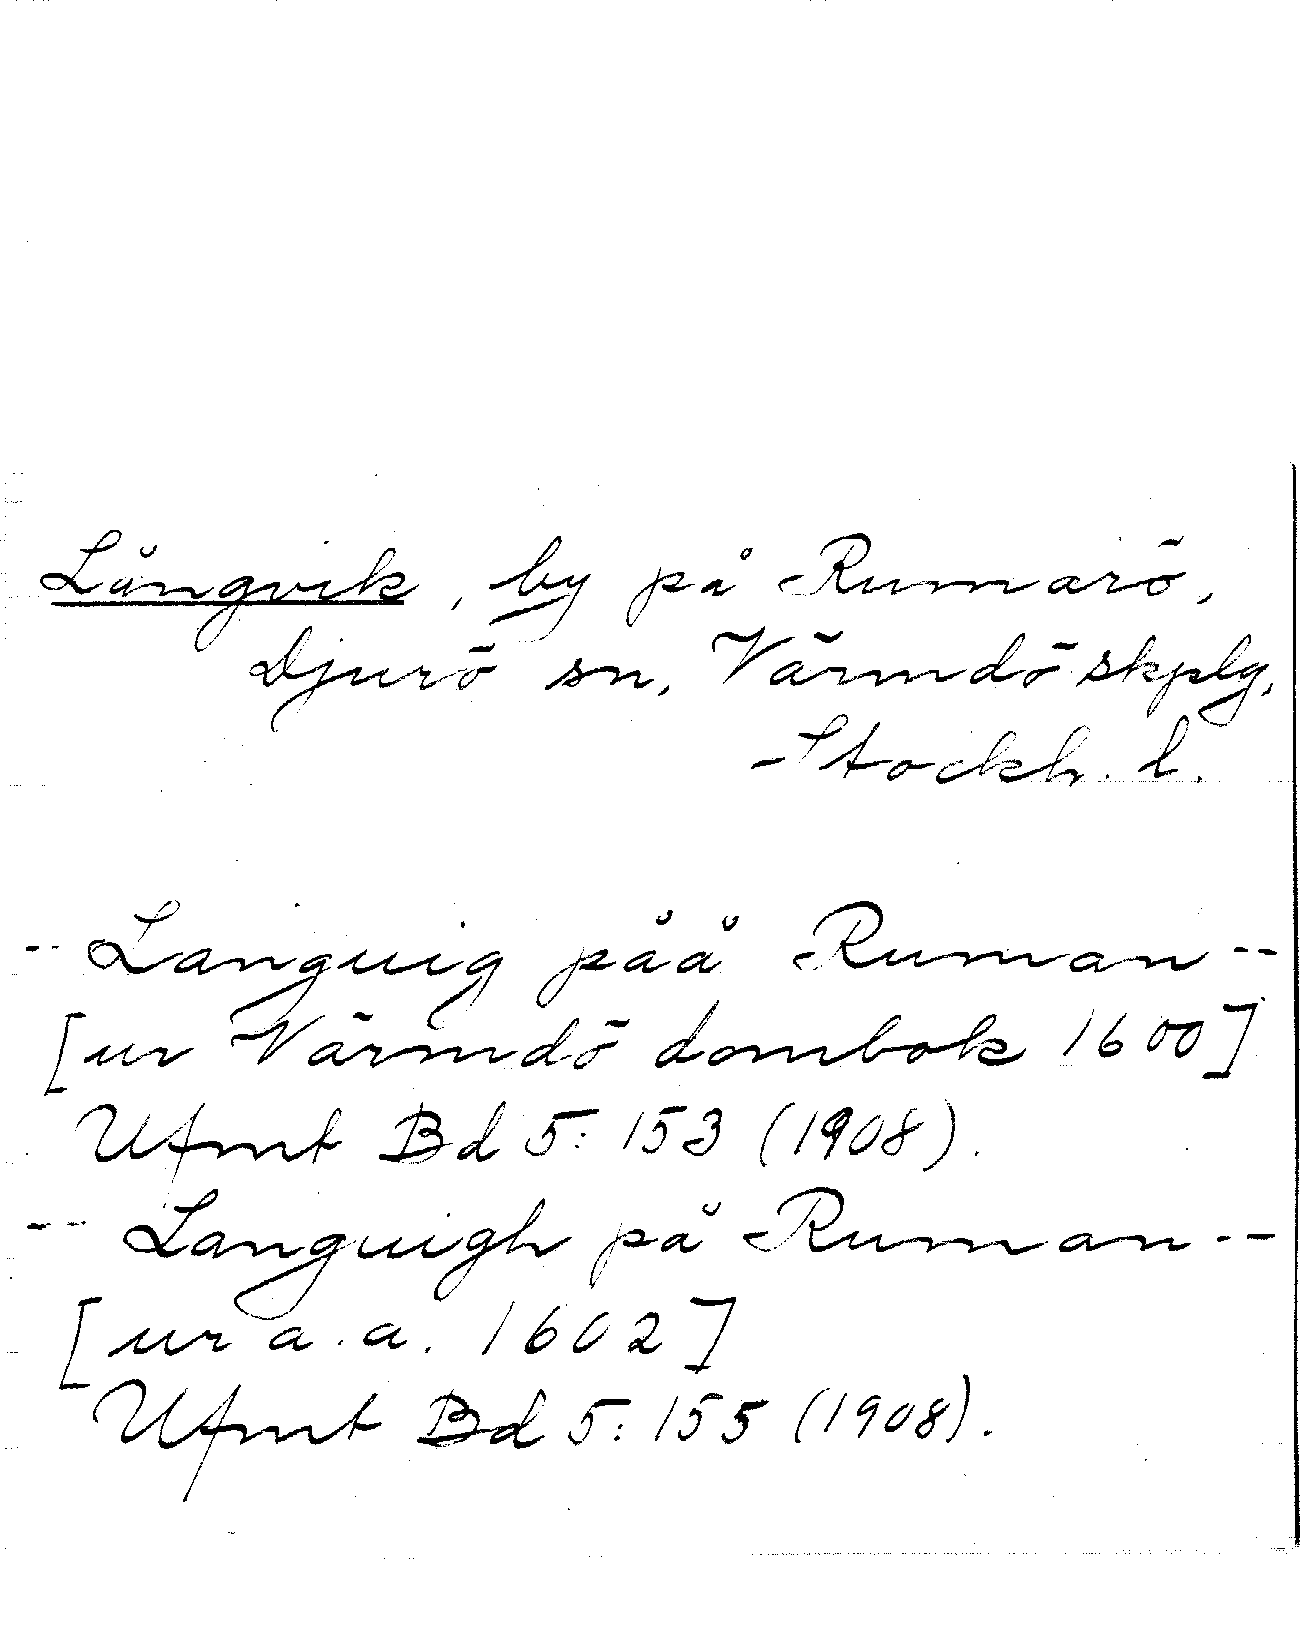 Långvik, by på Rumarö,
Djurö sn, Värmdö skplg,
Stockh. l.
-- Languig påå Ruman --
[ur Värmdö dombok 1600]
Ufmt Bd 5: 153 (1908).
-- Languigh på Ruman --
[ur a.a. 1602]
Ufmt Bd 5: 155 (1908).